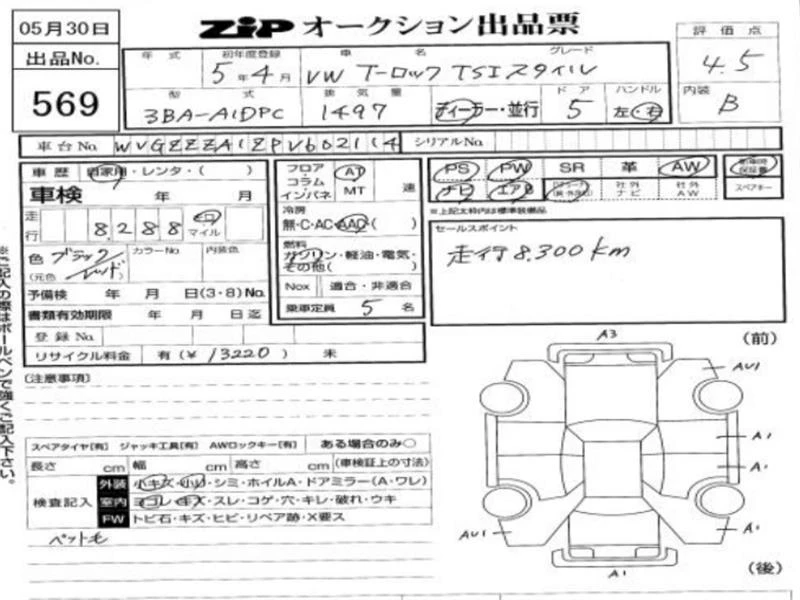 05月30日
出品No.
569
ZIP オークション出品票
年式 初年度登録 車名 グレード
5年4月 VW T-ロック TSIスタイル
型式 排気量 ドア ハンドル
3BA-A1DPC 1497 ディーラー・並行 5 左・右
評価点
4.5
内装
B
車台No. WVGZZZA1ZPV602114 シリアルNo.
車歴 自家用・レンタ・( )
車検 年 月
走行 8288 マイル
色 ブラック カラーNo. 内装色
(元色 レッド)
予備検 年 月 日(3・8)No.
書類有効期限 年 月 日迄
登録No.
リサイクル料金 有(¥ 13220 ) 未
フロア
コラム
インパネ
AT
MT
速
冷房
無・C・AC・AAC( )
燃料
ガソリン・軽油・電気・
その他( )
Nox 適合・非適合
乗車定員 5 名
PS PW SR 革 AW
ナビ エアB 社外ナビ 社外AW
スペアキー
※上記太枠内は標準装備品
セールスポイント
走行8.300km
(注意事項)
スペアタイヤ[有] ジャッキ工具[有] AWロックキー[有] ある場合のみ○
長さ cm 幅 cm 高さ cm (車検証上の寸法)
検査記入
外装 小キズ・小凹・シミ・ホイルA・ドアミラー(A・ワレ)
室内 ヨゴレ・キズ・スレ・コゲ・穴・キレ・破れ・ウキ
FW トビ石・キズ・ヒビ・リペア跡・X要ス
ペット毛
※ご記入の際はボールペンで強くご記入下さい。
(前)
A3
AU1
A1
A1
AU1
A1
A1
(後)